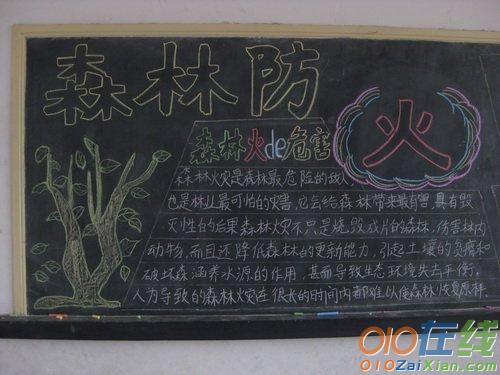 森林防火
森林火de危害
森林火灾是森林最危险的敌人,
也是林业最可怕的灾害,它会给森林带来最有害 具有毁
灭性的后果森林火灾不只是烧毁成片的森林,伤害林内
动物,而且还降低森林的更新能力,引起土壤的贫瘠和
破坏森涵养水源的作用,甚而导致生态环境失去平衡.
人为导致的森林火灾在很长的时间内都难以使森林恢复原样.
010在线
010ZaiXian.com